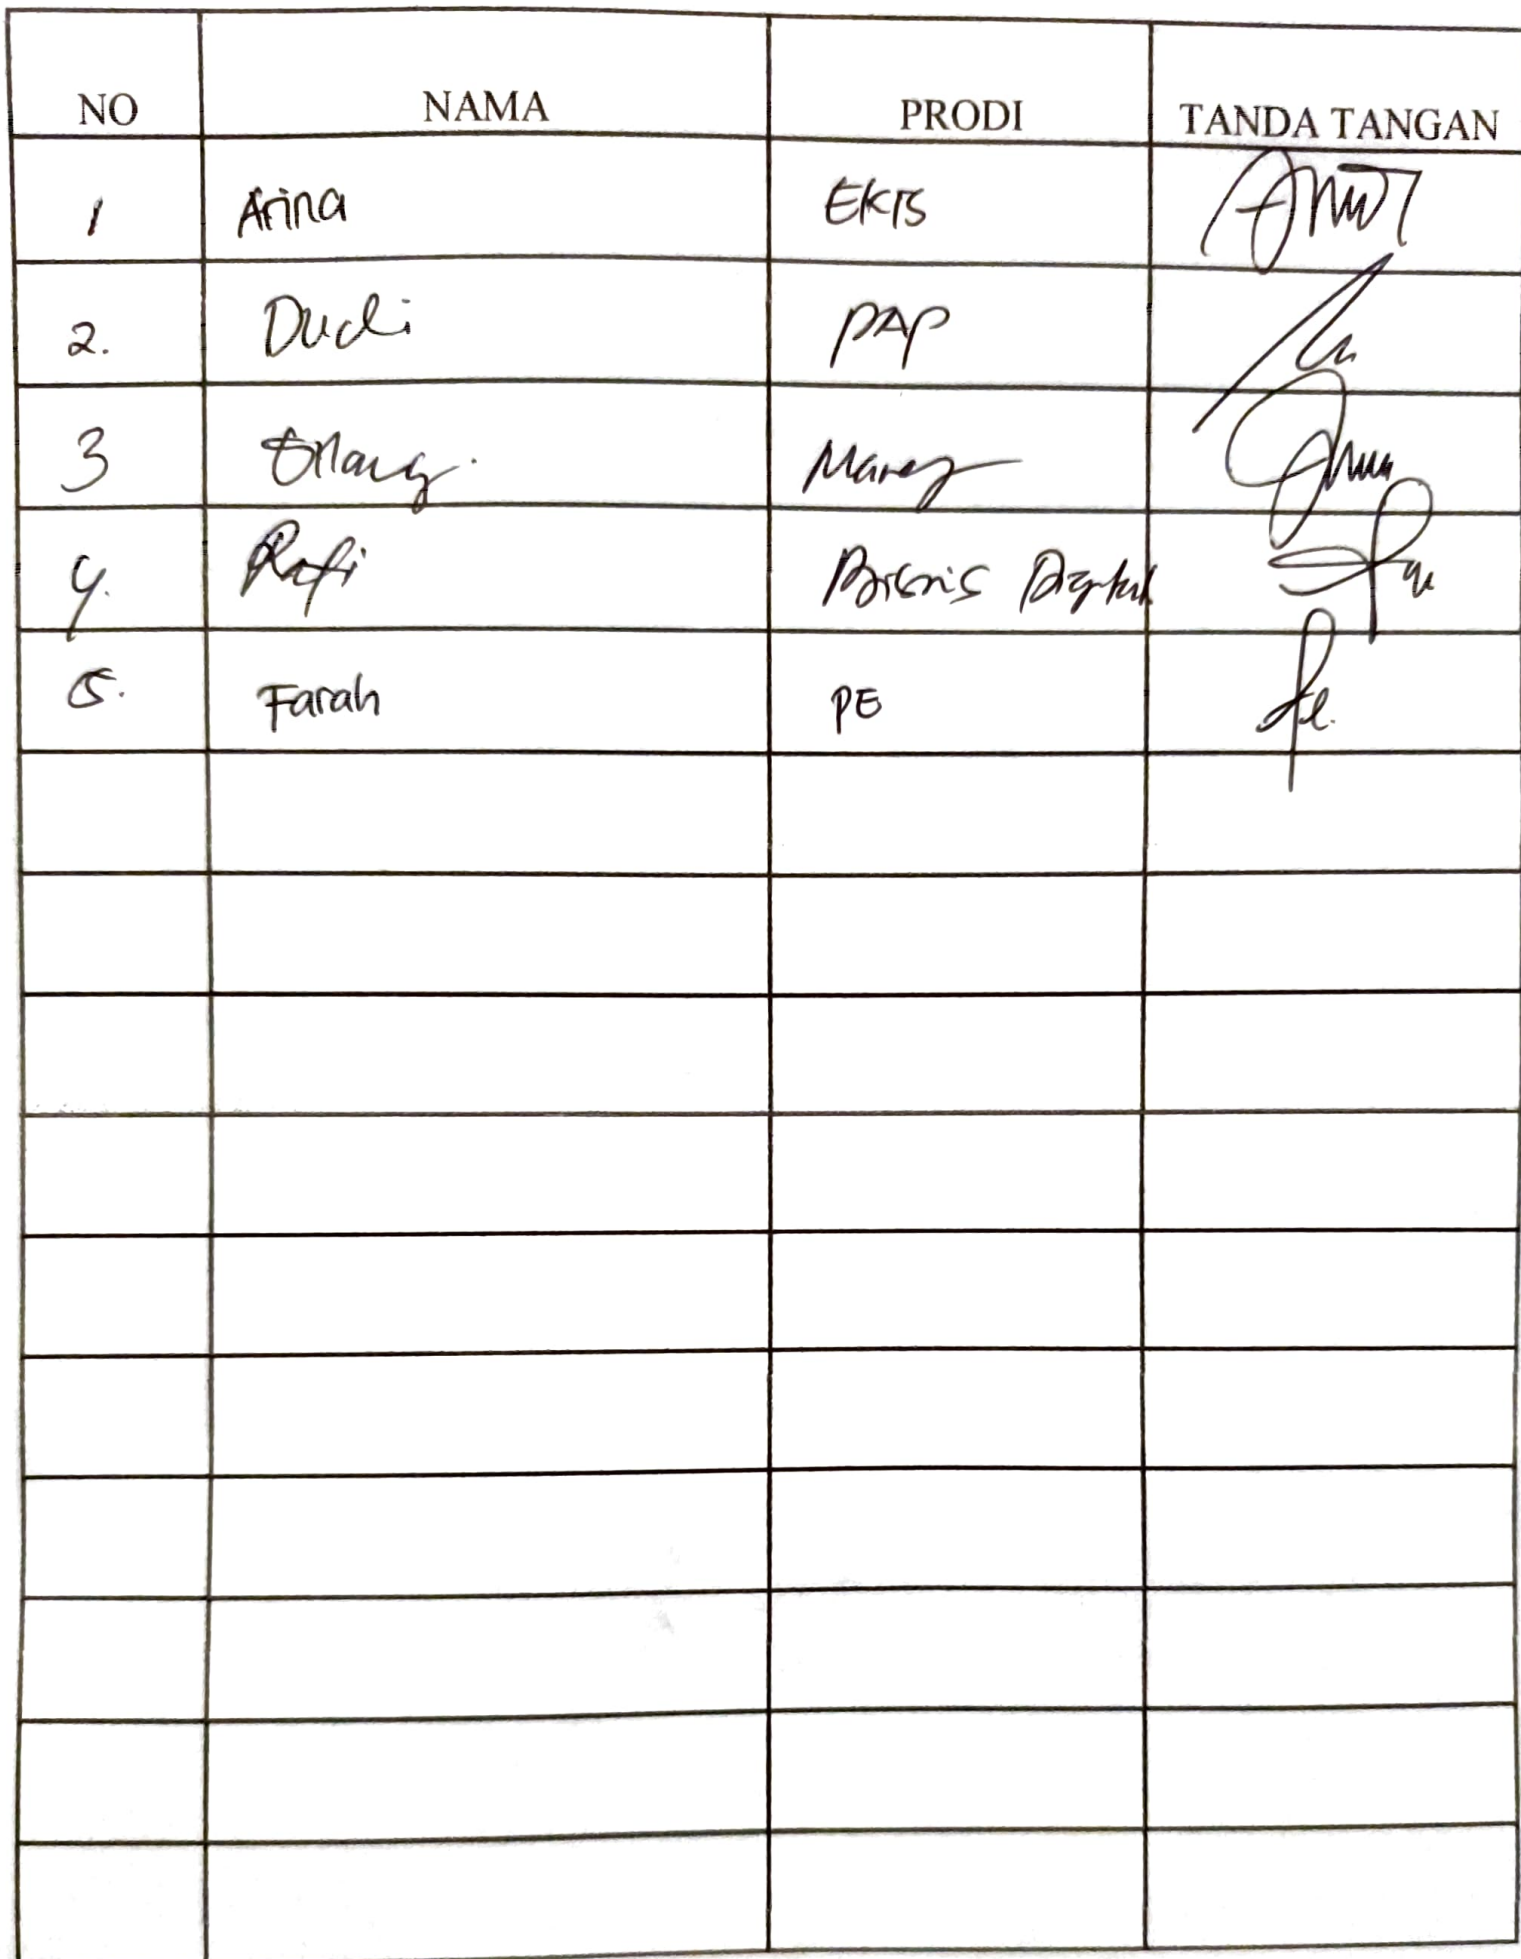 NO NAMA PRODI TANDA TANGAN
1 Arina EKIS
2. Dudi PAP
3 Erlang.
4. Rafi Bisnis Digital
5. Farah PE